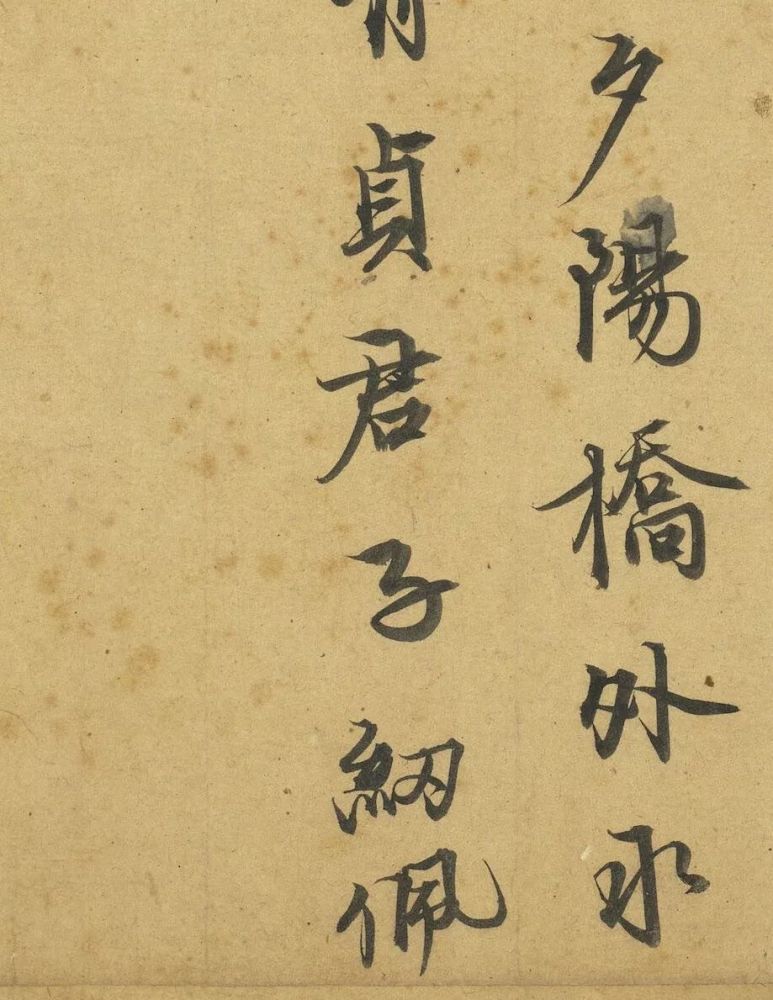 夕陽橋外水
貞君子紉佩